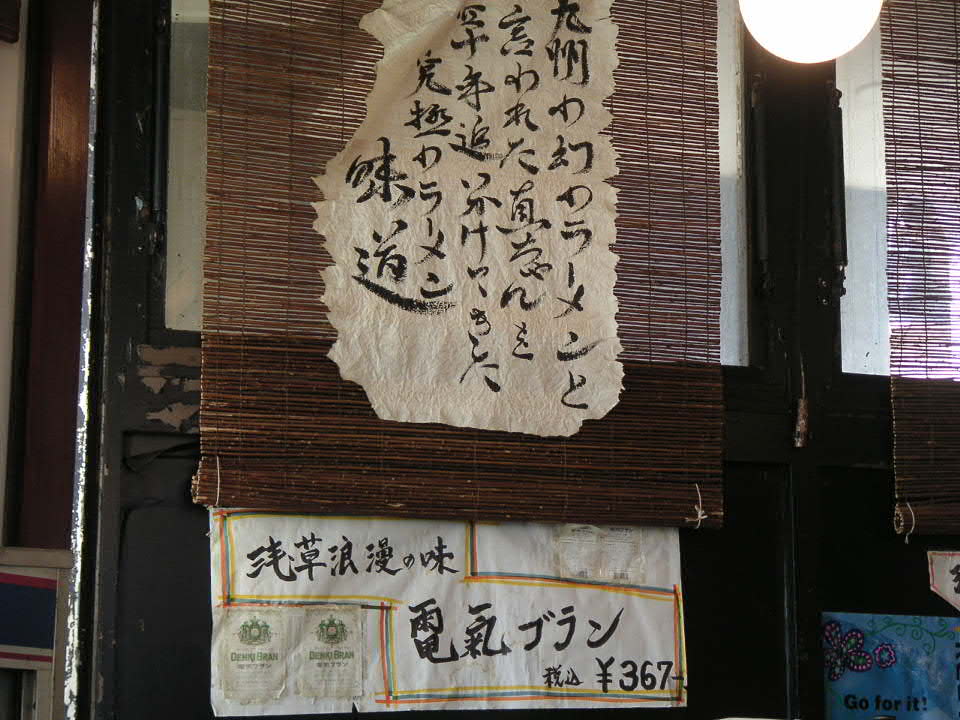 九州の幻のラーメンと
言われた真志んを
四十年追い分けてきた
究極のラーメン
味道
浅草浪漫の味
電氣ブラン
税込 ¥367-
DENKI BRAN
電気ブラン
DENKI BRAN
電気ブラン
Go for it!